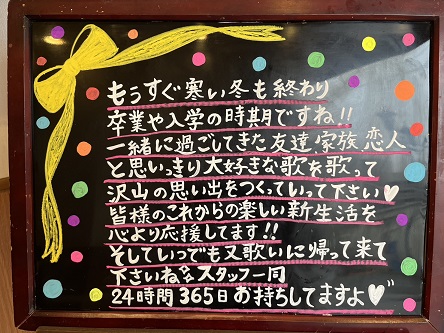 もうすぐ寒い冬も終わり
卒業や入学の時期ですね!!
一緒に過ごしてきた友達家族恋人
と思いっきり大好きな歌を歌って
沢山の思い出をつくっていって下さい♡
皆様のこれからの楽しい新生活を
心より応援してます!!
そしていつでも又歌いに帰って来て
下さいね♪スタッフ一同
24時間365日お持ちしてますよ♡